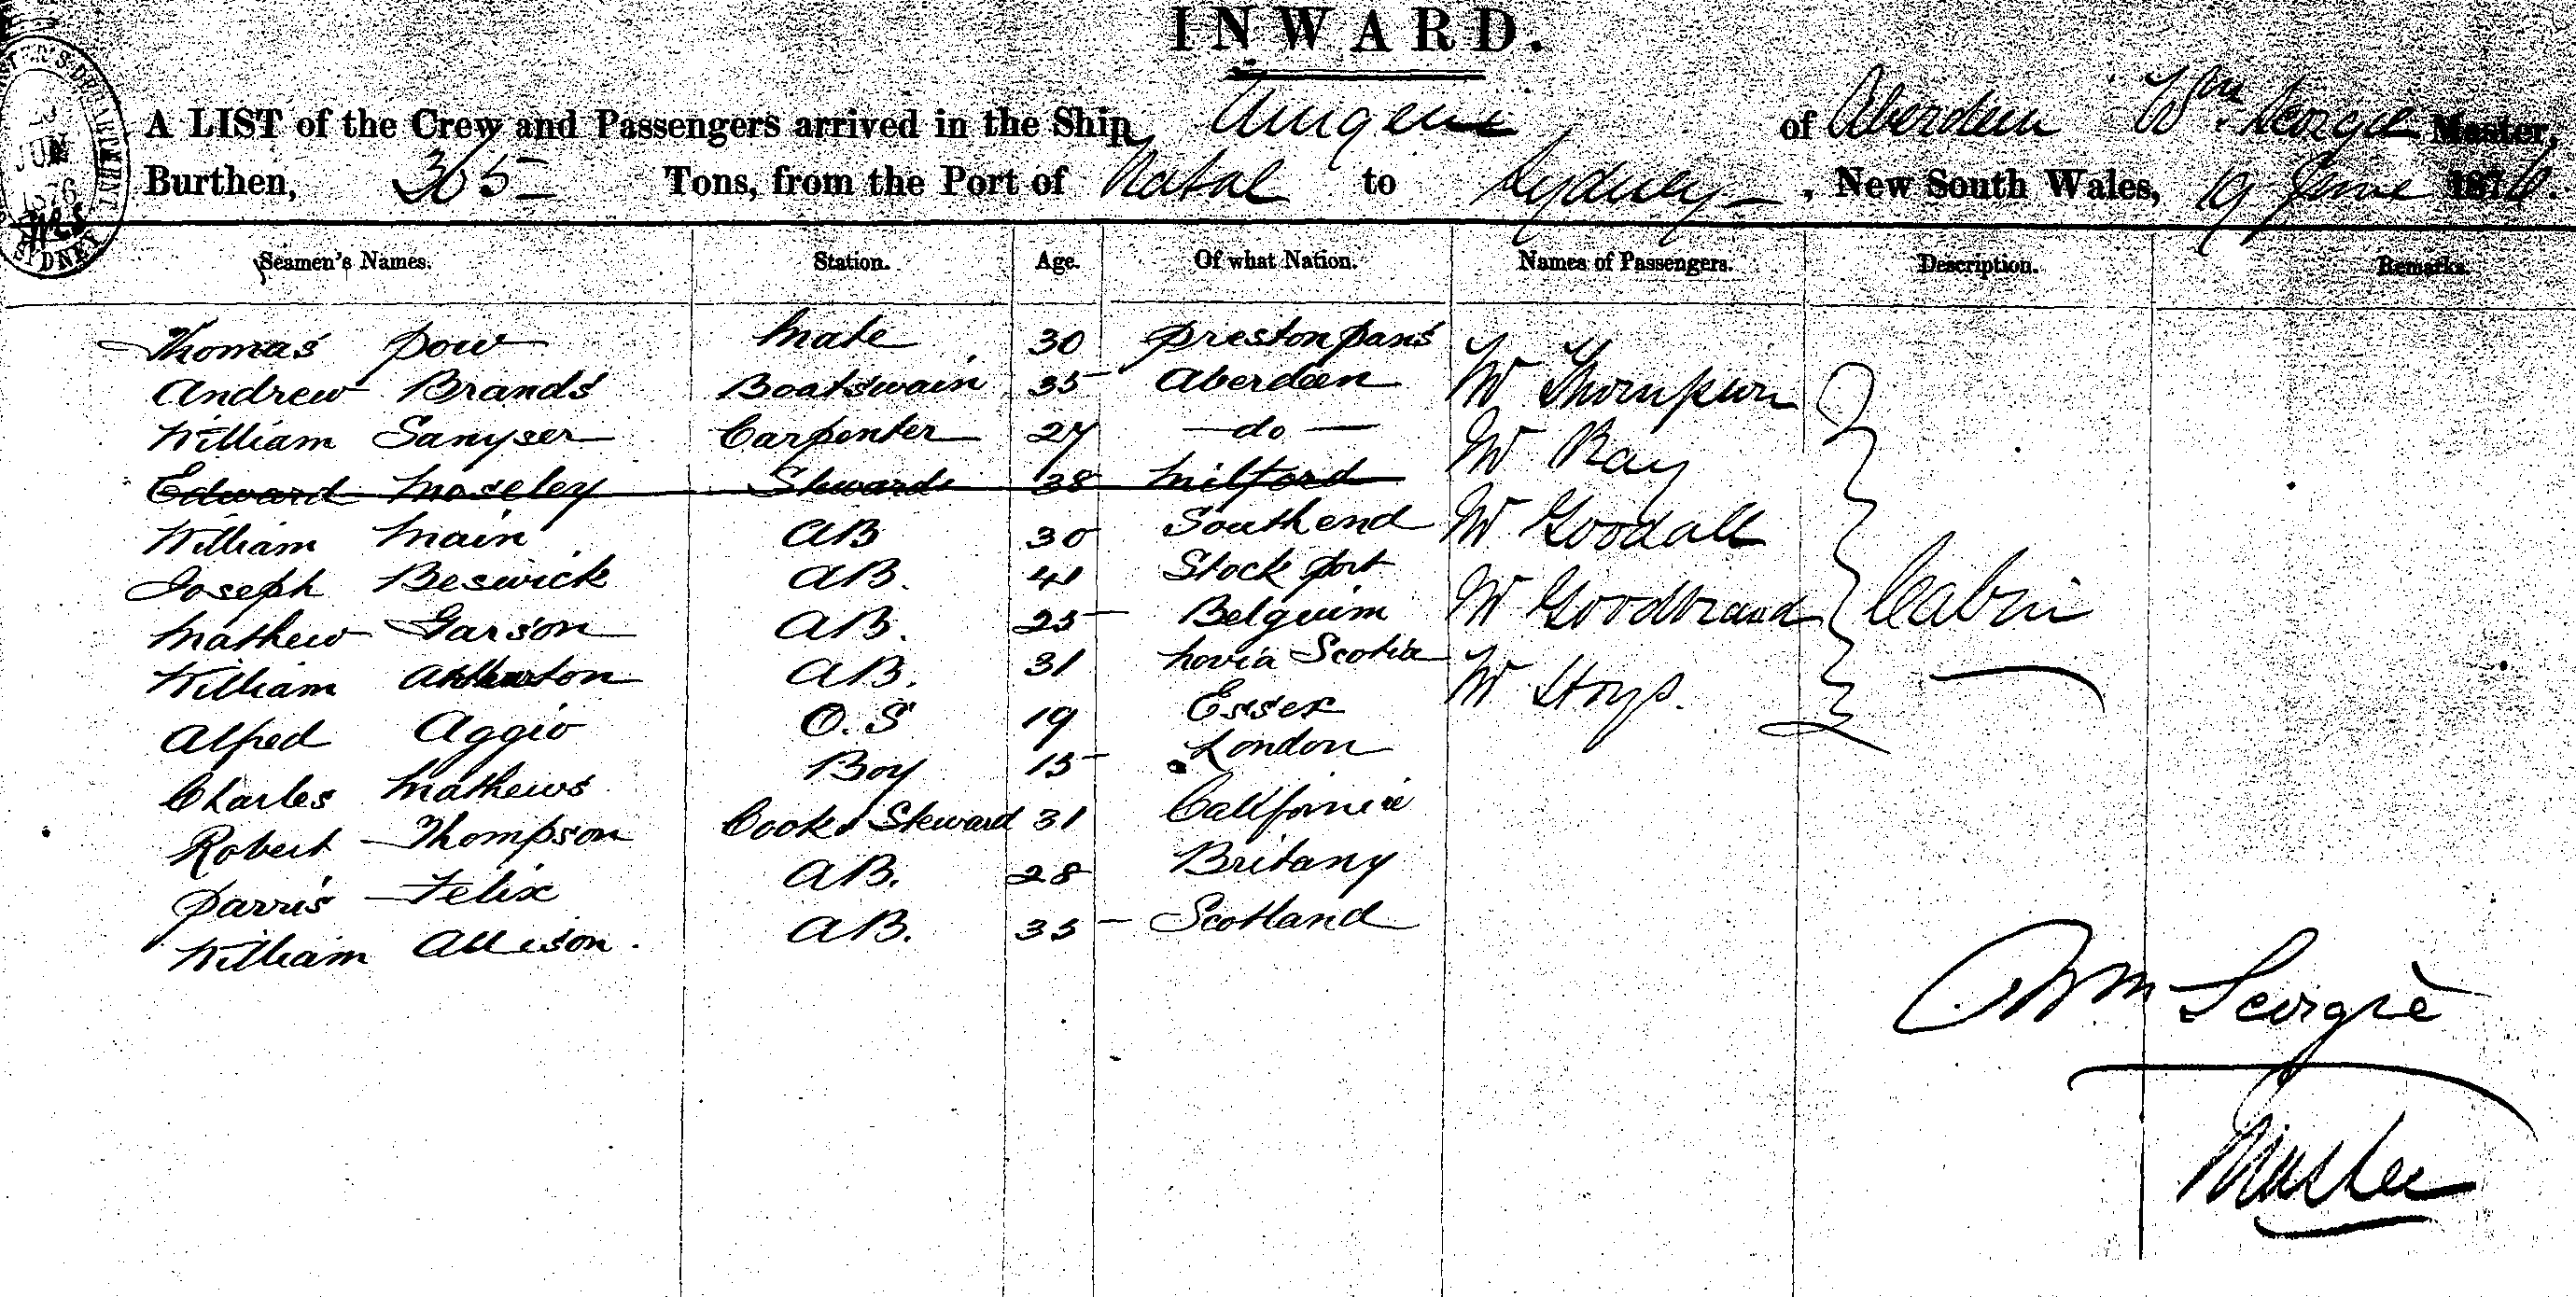 INWARD.
A LIST of the Crew and Passengers arrived in the Ship Umgeni of Aberdeen Wm. Scorgie Master,
Burthen, 365 Tons, from the Port of Natal to Sydney, New South Wales, 19 June 1876.
Seamen's Names. Station. Age. Of what Nation. Names of Passengers. Description. Remarks.
Thomas Pow Mate 30 Prestonpans
Andrew Brands Boatswain 35 Aberdeen Mr Thompson
William Samyser Carpenter 27 do Mr Ray
Edward Moseley Steward 38 Milford
William Main AB 30 Southend Mr Goodall
Joseph Beswick AB. 41 Stockport
Mathew Garson AB. 25 Belguim Mr Goodbrand Cabin
William AB. 31 Novia Scotia Mr Hoys.
Alfred Aggio O.S 19 Essex
Charles Mathews Boy 15 London
Robert Thompson Cook & Steward 31 California
Parris Felix AB. 28 Britany
William Allison. AB. 35 Scotland
Wm Scorgie
Master
JUN
1876
SYDNEY